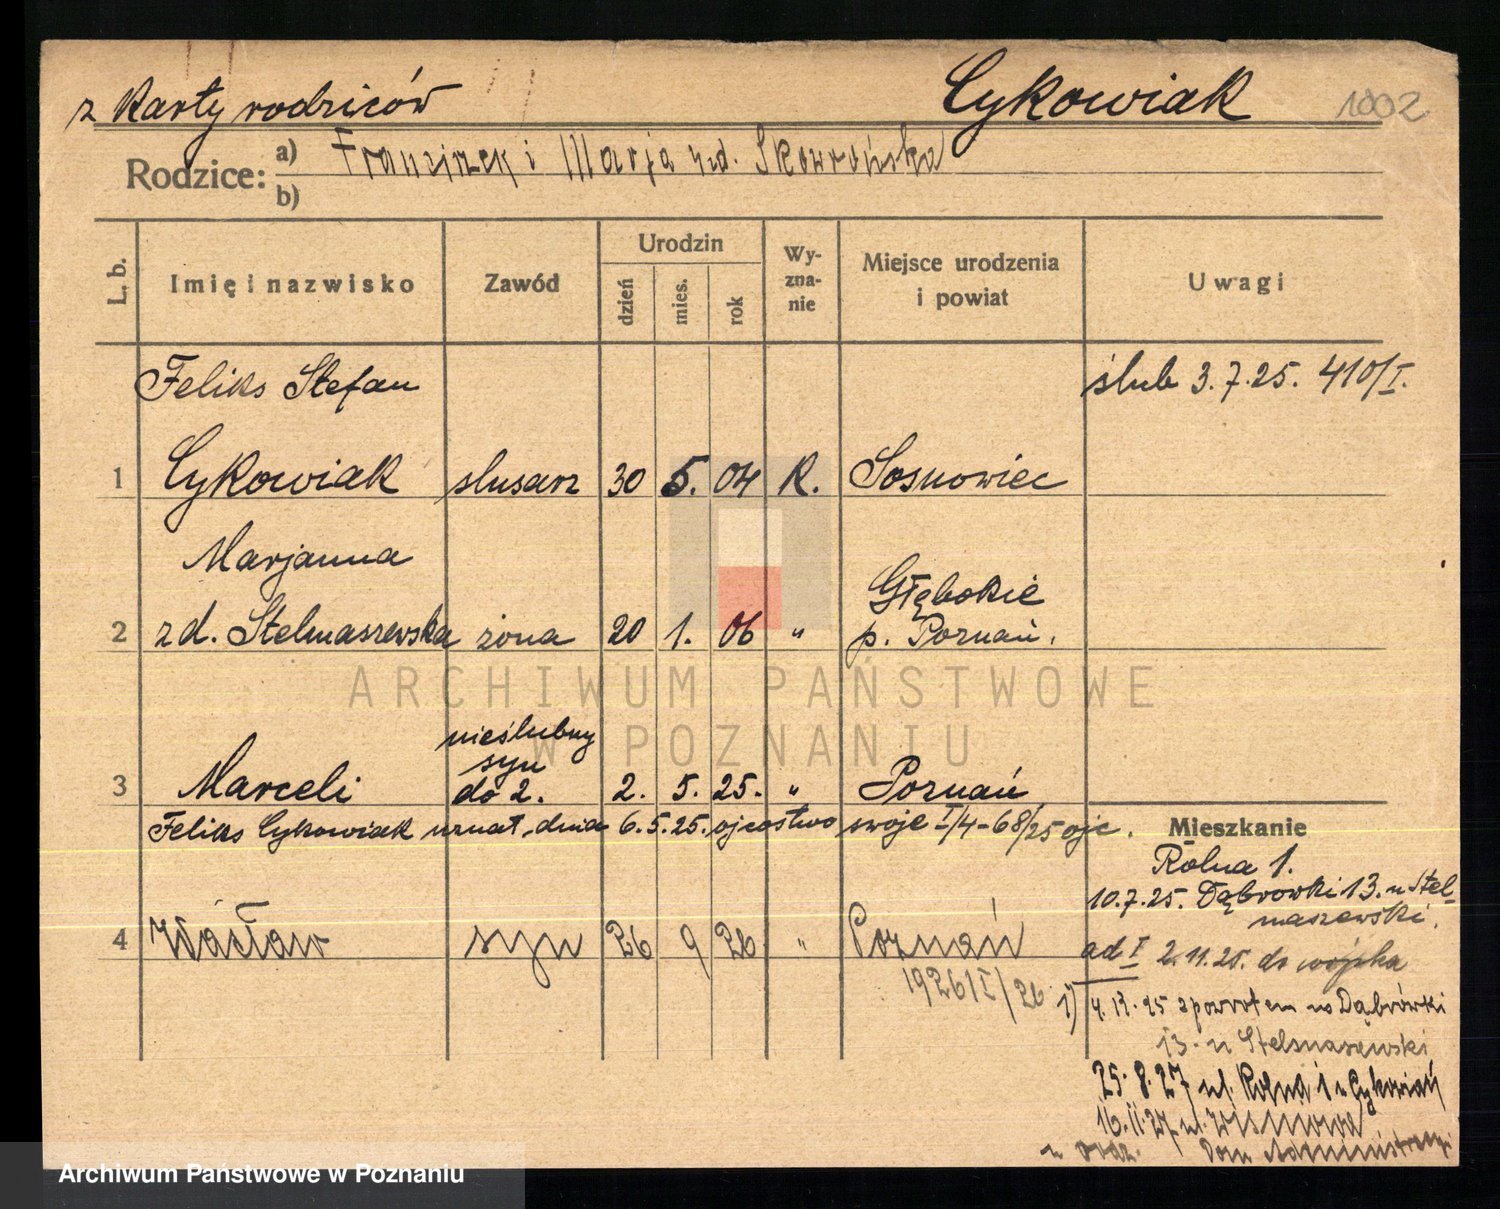 z karty rodziców Cykowiak 1002
Rodzice: a) Franciszek i Marja zd. Skowrońska
b)
L. b. Imię i nazwisko Zawód Urodzin dzień mies. rok Wyzna-nie Miejsce urodzenia i powiat Uwagi
Feliks Stefan ślub 3.7.25. 410/I.
1 Cykowiak slusarz 30 5. 04 K. Sosnowiec
Marjanna Głębokie
2 zd. Stelmaszewska żona 20 1. 06 " p. Poznań.
nieślubny
syn
3 Marceli do 2. 2. 5. 25. " Poznań
Feliks Cykowiak uznał dnia 6.5.25. ojcostwo swoje I/4-68/25 ojc.
Mieszkanie
Rolna 1.
10.7.25. Dąbrowki 13. u Stel-
maszewski.
4 Wacław syn 26 9 26 " Poznań
1926/I/26
ad I 2.11.25. do wojska
1) 4.11.25 zpowrotem w Dąbrówki
13. u Stelmaszewski
25.8.27 ul. Rolna 1 u Cykowiak
16.11.27 ul.
u rodz. Dom Administracji
ARCHIWUM PAŃSTWOWE
W POZNANIU
Archiwum Państwowe w Poznaniu